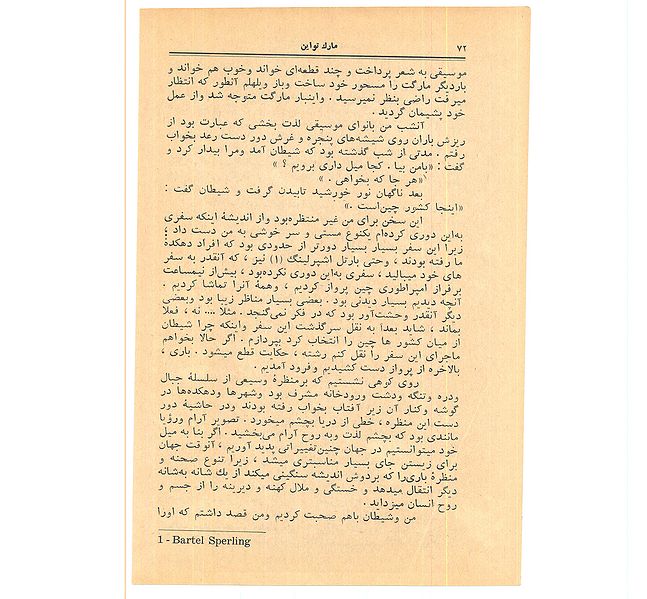 ۷۲
مارك تواین
موسیقی به شعر پرداخت و چند قطعه‌ای خواند وخوب هم خواند و
باردیگر مارگت را مسحور خود ساخت وباز ویلهلم آنطور که انتظار
میرفت راضی بنظر نمیرسید . واینبار مارگت متوجه شد واز عمل
خود پشیمان گردید .
آنشب من بانوای موسیقی لذت بخشی که عبارت بود از
ریزش باران روی شیشه‌های پنجره و غرش دور دست رعد بخواب
رفتم . مدتی از شب گذشته بود که شیطان آمد ومرا بیدار کرد و
گفت : «بامن بیا . کجا میل داری برویم ؟ »
«هر جا که بخواهی . »
بعد ناگهان نور خورشید تابیدن گرفت و شیطان گفت :
«اینجا کشور چین‌است .»
این سخن برای من غیر منتظره‌بود واز اندیشهٔ اینکه سفری
به‌این دوری کرده‌ام یکنوع مستی و سر خوشی به من دست داد ؛
زیرا این سفر بسیار بسیار دورتر از حدودی بود که افراد دهکدهٔ
ما رفته بودند ، وحتی بارتل اشپرلینگ (۱) نیز ، که آنقدر به سفر
های خود میبالید ، سفری به‌این دوری نکرده‌بود ، بیش‌از نیمساعت
برفراز امپراطوری چین پرواز کردیم ، وهمهٔ آنرا تماشا کردیم .
آنچه دیدیم بسیار دیدنی بود . بعضی بسیار مناظر زیبا بود وبعضی
دیگر آنقدر وحشت‌آور بود که در فکر نمی‌گنجد . مثلا .... نه ، فعلا
بماند ، شاید بعدا به نقل سرگذشت این سفر واینکه چرا شیطان
از میان کشور ها چین را انتخاب کرد بپردازم . اگر حالا بخواهم
ماجرای این سفر را نقل کنم رشته ، حکایت قطع میشود . باری ،
بالاخره از پرواز دست کشیدیم وفرود آمدیم .
روی کوهی نشستیم که برمنظرهٔ وسیعی از سلسلهٔ جبال
ودره وتنگه ودشت ورودخانه مشرف بود وشهرها ودهکده‌ها در
گوشه وکنار آن زیر آفتاب بخواب رفته بودند ودر حاشیهٔ دور
دست این منظره ، خطی از دریا بچشم میخورد . تصویر آرام ورؤیا
مانندی بود که بچشم لذت وبه روح آرام می‌بخشید . اگر بنا به میل
خود میتوانستیم در جهان چنین‌تغییراتی پدید آوریم ، آنوقت جهان
برای زیستن جای بسیار مناسبتری میشد ، زیرا تنوع صحنه و
منظرهٔ باری‌را که بردوش اندیشه سنگینی میکند از یك شانه به‌شانه
دیگر انتقال میدهد و خستگی و ملال کهنه و دیرینه را از جسم و
روح انسان میزداید .
من وشیطان باهم صحبت کردیم ومن قصد داشتم که اورا
1 - Bartel Sperling